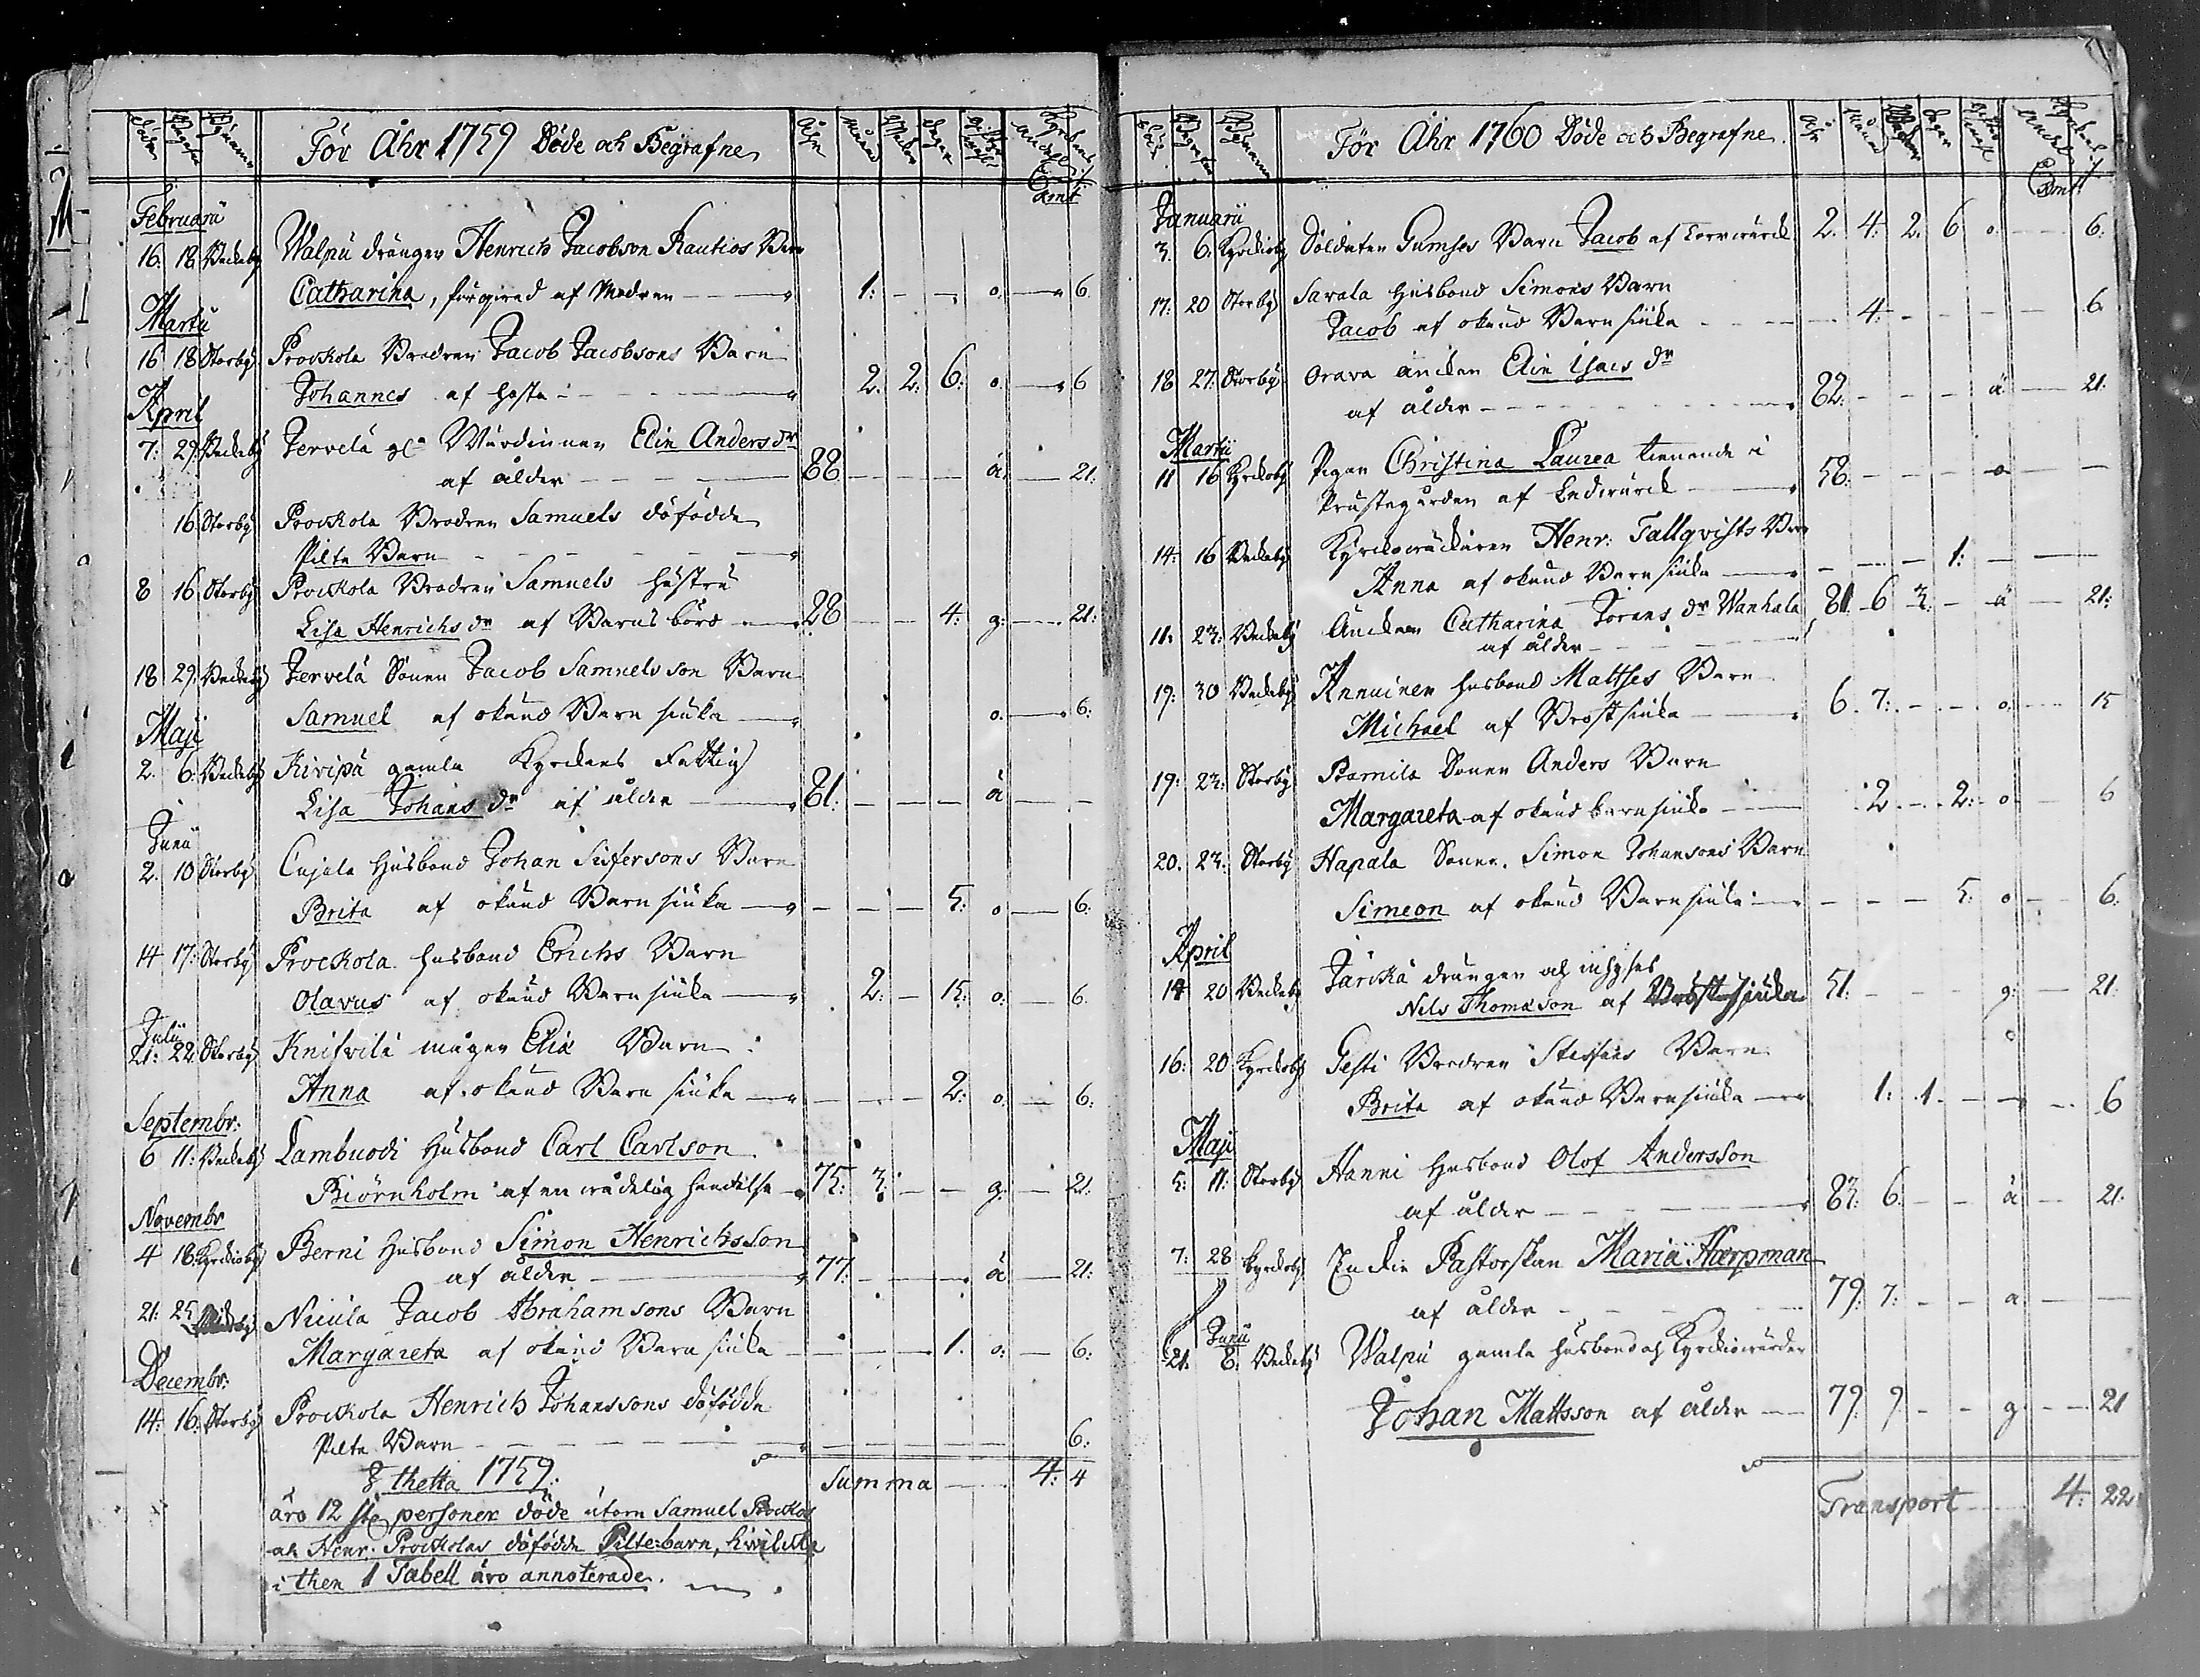 För Åhr 1759 Döde och Begrafne
Februarii
16. 18 Wäckeby Walpu drängen Henrich Jacobson Rautios Barn
Catharina, förqwäfd af Modren 1: o. 6
Martii
16 18 Storby Prockola Brodren Jacob Jacobsons Barn
Johannes af hosta 2. 2. 6: o. 6
April
7: 29 Wäckeby Jervelä gl. Wärdinnan Elin Anders dr
af ålder 88 ä. 21:
16 Storby Prockola Brodren Samuels döfödde
Pilte Barn
8 16 Storby Prockola Brodren Samuels hustru
Lisa Henrichs dr af Barns börd 28 4: g: 21:
18 29 Wäckeby Jervelä Sonen Jacob Samuelsson Barn
Samuel af okänd Barnsiuka o. 6:
Maji
2. 6: Wäckeby Kivipä gamla Kyrckans Fattig
Lisa Johans dr af ålder 81: ä
Junii
2. 10 Storby Cujala Husbond Johan Sifersons Barn
Brita af okänd Barnsiuka 5: o 6:
14 17: Storby Prockola husbond Erichs Barn
Olavus af okänd Barnsiuka 2: 15: o: 6
Julii
21: 22 Storby Knifvilä mågen Elia Barn
Anna af okänd Barnsiuka 2: o: 6:
Septembr:
6 11: Wäckeby Lambuodi Husbond Carl Carlson
Biörnholm af en wådelig händelse 75: 3: g: 21:
Novembr
4 18: Kyrckioby Berni Husbond Simon Henrichsson
af ålder 77: ä 21:
21: 25 Nicula Jacob Abrahamsons Barn
Margareta af okänd Barnsiuka 1. o: 6:
Decembr:
14: 16: Storby Prockola Henrich Johanssons döfödde
Pilte Barn 6:
thetta 1759: Summa 4: 4
äro 12 st. personer döde utom Samuel Prockolas
och Henr. Prockolas döfödde Piltebarn, hwilcka
i then 1 Tabell äro annoterade.
För Åhr 1760 Döde och Begrafne
Januarii
3. 6. Kyrckioby Soldaten Gumses Barn Jacob af Torrwärck 2. 4: 2. 6 o. 6.
17: 20 Storby Savala Husbond Simons Barn
Jacob af okänd Barnsiuka 4: 6
18 27: Storby Orava änckan Elin Isacs dr
af ålder 82: ä 21:
Martii
11 16 Kyrckoby Pigan Christina Laurea tienande i
Prästegården af Ledwärck 58: o
14: 16 Wäckeby Kyrckowächtaren Henr: Tallqvists Barn
Anna af okänd Barnsiuka 1:
11: 23: Wäckeby Änckan Catharina Jörans dr Wanhala 81 6 3: ä 21:
af ålder
19: 30 Wäckeby Annuinen husbond Mattses Barn
Michael af Bröstsiuka 6. 7: o 15
19: 23: Storby Ramila Sonen Anders Barn
Margareta af okänd barnsiuka 2 2: o 6
20. 23: Storby Hapala Sonen Simon Johansons Barn
Simeon af okänd Barnsiuka 5: o 6.
April
14 20 Wäckeby Järckä drängen och inhyses
Nils Thomasson af Bröstsiuka 51: g: 21:
16: 20 Kyrckoby Gesti Brodren Steffans Barn
Brita af okänd Barnsiuka 1: 1. 6
Maji
5: 11: Storby Hanni Husbond Olof Andersson
af ålder 83: 6: ä 21:
7: 28 Kyrckoby Enckie Pastorskan Maria Harpman
af ålder 79: 7: a
Junii
21: 8: Wäckeby Walpu gamla husbond och Kyrckiowärden
Johan Mattsson af ålder 79: 9 g. 21
Transport 4: 22